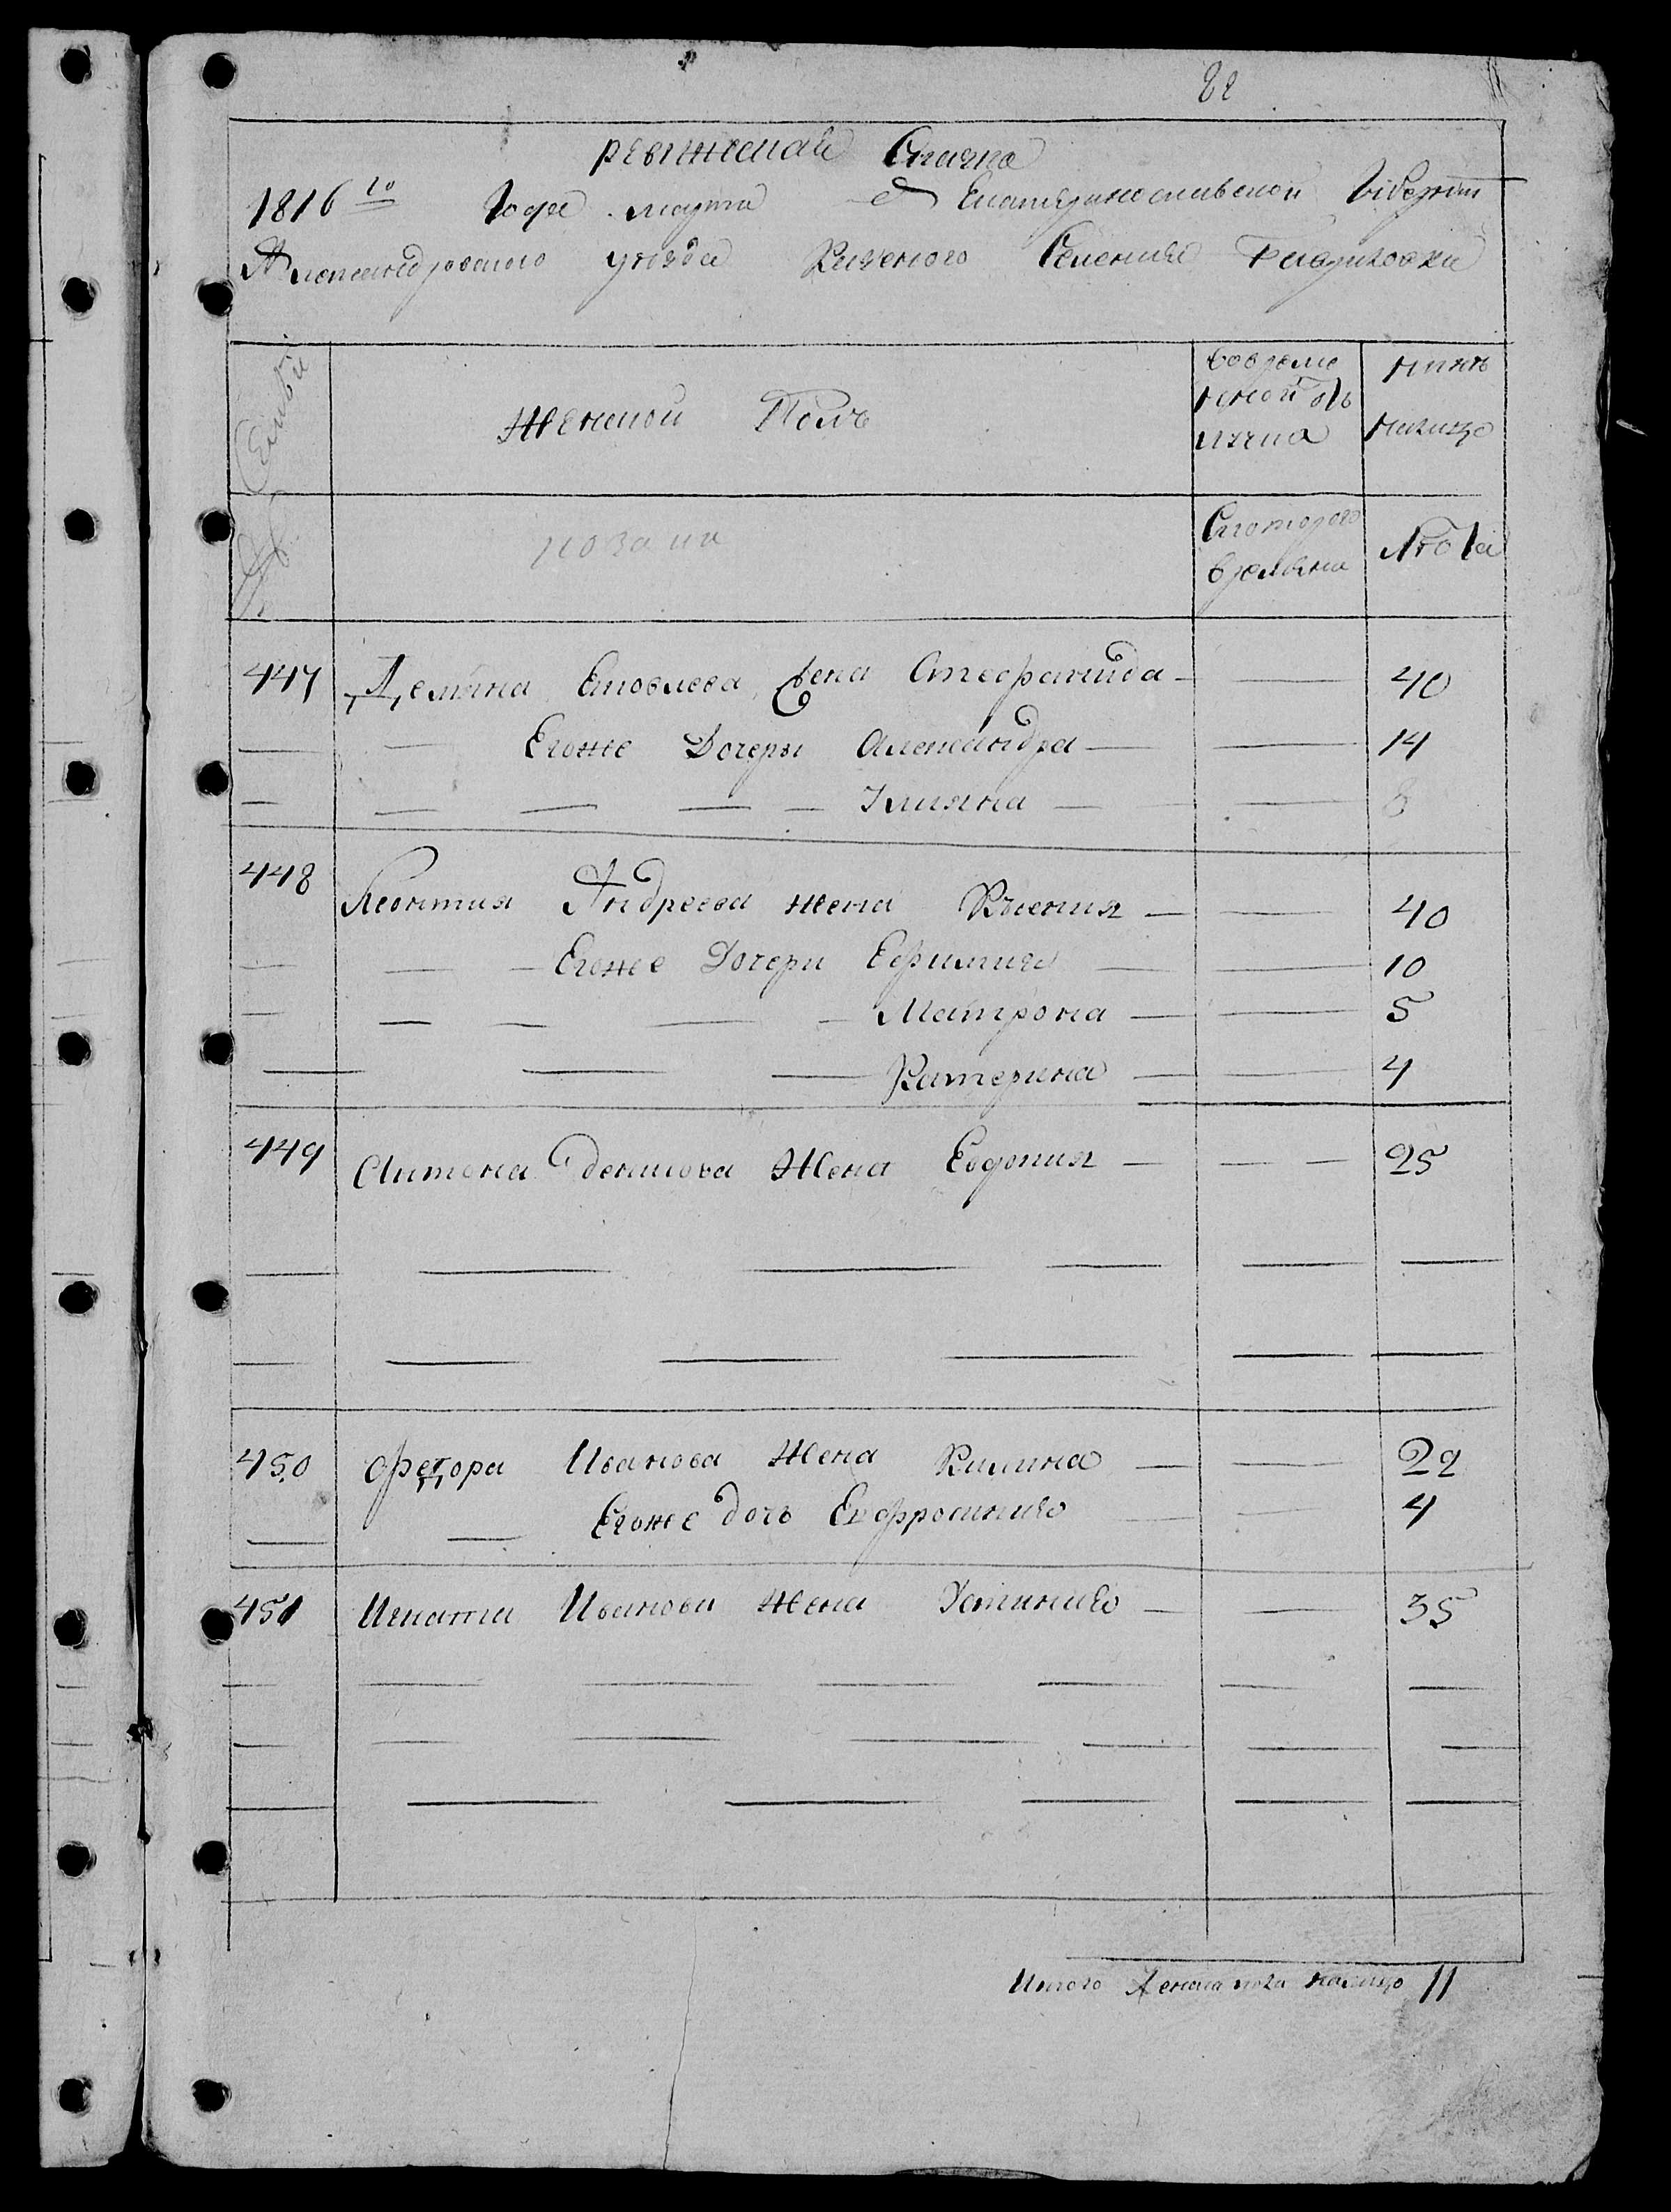 82
ревижская Скаска
1816го Года марта Екатеринославской Губерни
Александровского уезда Казенного Селения Гавриловки
Семьи
Женской Полъ
вовреме
нной отъ
лучка
нынъ
налицо
козаки
Скоторого
времяни
Лѣта
447 Демяна Яковлева жена Стефанида 40
Егоже Дочеры Александра 14
Улияна 8
448 Леонтия Андреева жена Ксения 40
Егоже Дочери Ефимия 10
Матрона 5
Катерина 4
449 Антона Данилова Жена Евдокия 25
450 Федора Иванова Жена Килина 22
Егоже дочь Евфросиния 4
451 Игната Иванова Жена Устиния 35
Итого женска пола налицо 11